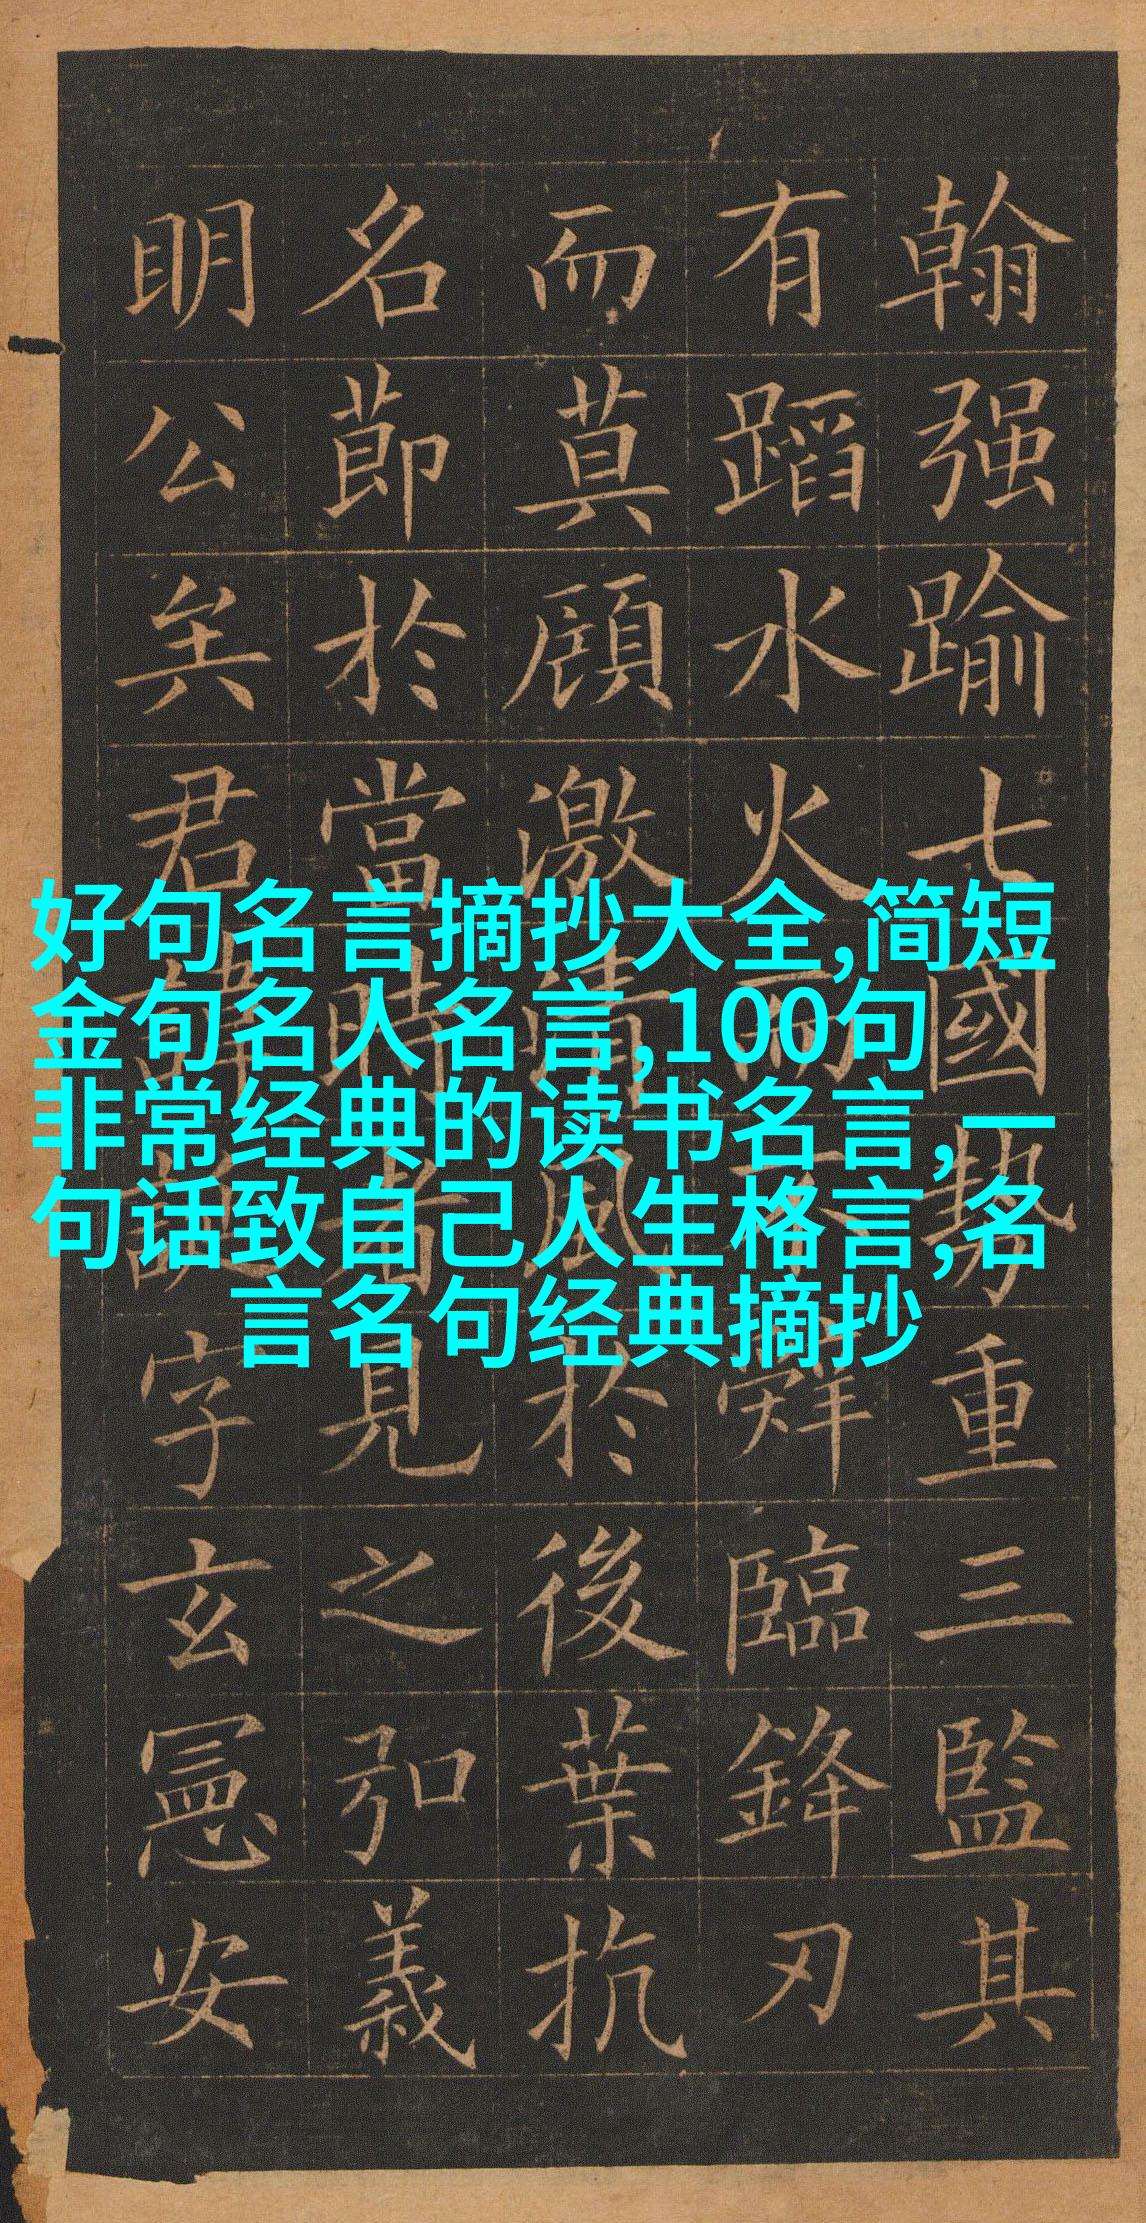 翰强踰七國勢重三監其
有蹈水火而不辭臨鋒刃
而莫顧激清風於後葉抗
名節於當時者見之弘義
明公矣君諱誕字玄憲安
好句名言摘抄大全,简短
金句名人名言,100句
非常经典的读书名言,一
句话致自己人生格言,名
言名句经典摘抄